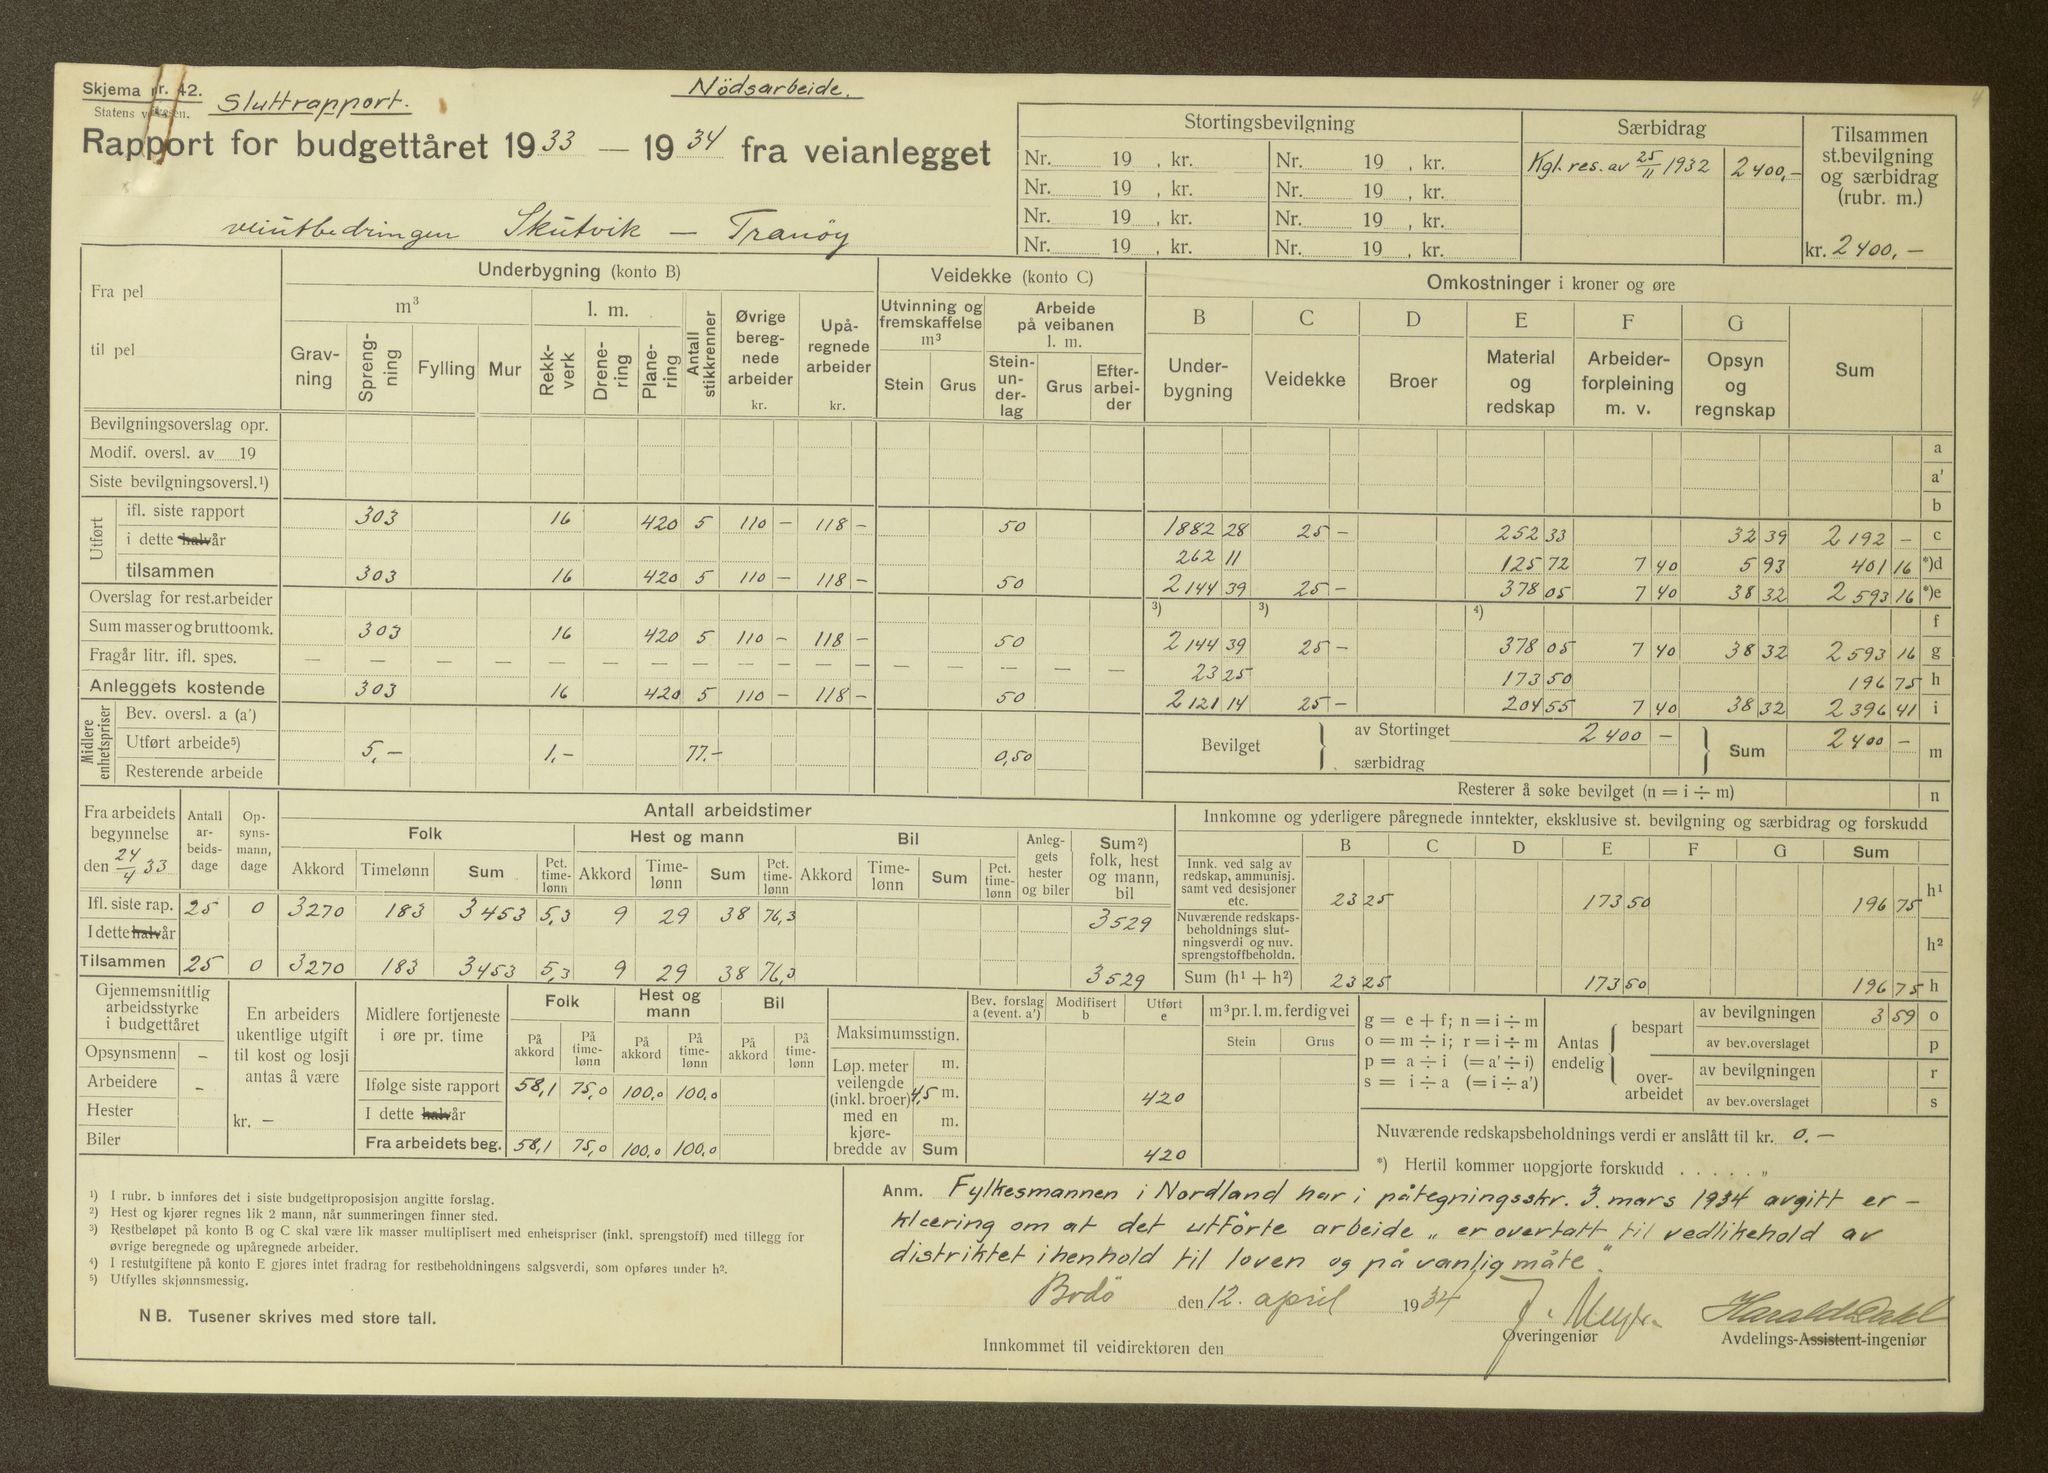 Skjema nr. 42.
Statens veivesen.
Sluttrapport.
Nödsarbeide.
Rapport for budgettåret 1933 — 1934 fra veianlegget
veiutbedringen Skutvik — Tranöy
Stortingsbevilgning
Nr. 19 , kr. Nr. 19 , kr.
Nr. 19 , kr. Nr. 19 , kr.
Nr. 19 , kr. Nr. 19 , kr.
Nr. 19 , kr. Nr. 19 , kr.
Særbidrag
Kgl. res. av 25/11 1932 2400,-
Tilsammen
st.bevilgning
og særbidrag
(rubr. m.)
kr. 2400,-
Fra pel
til pel
Underbygning (konto B)
m³ l. m.
Grav-
ning
Spreng-
ning
Fylling
Mur
Rekk-
verk
Drene-
ring
Plane-
ring
Antall
stikkrenner
Øvrige
bereg-
nede
arbeider
kr.
Upå-
regnede
arbeider
kr.
Veidekke (konto C)
Utvinning og
fremskaffelse
m³
Stein Grus
Arbeide
på veibanen
l. m.
Stein-
un-
der-
lag
Grus
Efter-
arbei-
der
Omkostninger i kroner og øre
B C D E F G
Under-
bygning
Veidekke
Broer
Material
og
redskap
Arbeider-
forpleining
m. v.
Opsyn
og
regnskap
Sum
Bevilgningsoverslag opr. a
Modif. oversl. av 19 a'
Siste bevilgningsoversl.¹) b
Utført
ifl. siste rapport 303 16 420 5 110 — 118 — 50 1882 28 25 — 252 33 32 39 2 192 — c
i dette halvår 262 11 125 72 7 40 5 93 401 16 *)d
tilsammen 303 16 420 5 110 — 118 — 50 2 144 39 25 — 378 05 7 40 38 32 2 593 16 *)e
Overslag for rest.arbeider ³) ³) ⁴) f
Sum masser og bruttoomk. 303 16 420 5 110 — 118 — 50 2 144 39 25 — 378 05 7 40 38 32 2 593 16 g
Fragår litr. ifl. spes. — — — — — — — — — — — — — — — 23 25 173 50 196 75 h
Anleggets kostende 303 16 420 5 110 — 118 — 50 2 121 14 25 — 204 55 7 40 38 32 2 396 41 i
Midlere
enhetspriser
Bev. oversl. a (a')
Utført arbeide⁵) 5,- 1.- 77.- 0,50
Resterende arbeide
Bevilget
av Stortinget 2 400 —
særbidrag
Sum 2 400 — m
Resterer å søke bevilget (n = i ÷ m) n
Fra arbeidets
begynnelse
den 24/4 33
Antall
ar-
beids-
dage
Op-
syns-
mann,
dage
Antall arbeidstimer
Folk Hest og mann Bil
Akkord Timelønn Sum Pct.
time-
lønn
Akkord Time-
lønn Sum Pct.
time-
lønn
Akkord Time-
lønn Sum Pct.
time-
lønn
Anleg-
gets
hester
og biler
Sum²)
folk, hest
og mann,
bil
Ifl. siste rap. 25 0 3270 183 3453 5,3 9 29 38 76,3 3529
I dette halvår
Tilsammen 25 0 3270 183 3453 5,3 9 29 38 76,3 3529
Innkomne og yderligere påregnede inntekter, eksklusive st. bevilgning og særbidrag og forskudd
B C D E F G Sum
Innk. ved salg av
redskap, ammunisj.
samt ved desisjoner
etc.
23 25 173 50 196 75 h¹
Nuværende redskaps-
beholdnings slut-
ningsverdi og nuv.
sprengstoffbeholdn.
h²
Sum (h¹ + h²) 23 25 173 50 196 75 h
Gjennemsnittlig
arbeidsstyrke
i budgettåret
Opsynsmenn —
Arbeidere —
Hester
Biler
En arbeiders
ukentlige utgift
til kost og losji
antas å være
kr. —
Midlere fortjeneste
i øre pr. time
Folk Hest og
mann Bil
På
akkord
På
time-
lønn
På
akkord
På
time-
lønn
På
akkord
På
time-
lønn
Ifølge siste rapport 58,1 75,0 100,0 100,0
I dette halvår
Fra arbeidets beg. 58,1 75,0 100,0 100,0
Bev. forslag
a (event. a')
Modifisert
b
Utført
e
m³ pr. l. m. ferdig vei
Stein Grus
Maksimumsstign.
Løp. meter
veilengde
(inkl. broer)
med en
kjøre-
bredde av
m.
4,5 m. 420
m.
Sum 420
g = e + f; n = i ÷ m
o = m ÷ i; r = i ÷ m
p = a ÷ i (= a' ÷ i)
s = i ÷ a (= i ÷ a')
Antas
endelig
bespart
over-
arbeidet
av bevilgningen 3 59 o
av bev.overslaget p
av bevilgningen r
av bev.overslaget s
Nuværende redskapsbeholdnings verdi er anslått til kr. 0.-
*) Hertil kommer uopgjorte forskudd . . . . . „
¹) I rubr. b innføres det i siste budgettproposisjon angitte forslag.
²) Hest og kjører regnes lik 2 mann, når summeringen finner sted.
³) Restbeløpet på konto B og C skal være lik masser multiplisert med enhetspriser (inkl. sprengstoff) med tillegg for
øvrige beregnede og upåregnede arbeider.
⁴) I restutgiftene på konto E gjøres intet fradrag for restbeholdningens salgsverdi, som opføres under h².
⁵) Utfylles skjønnsmessig.
NB. Tusener skrives med store tall.
Anm. Fylkesmannen i Nordland har i påtegningsskr. 3. mars 1934 avgitt er-
klæring om at det utførte arbeide „er overtatt til vedlikehold av
distriktet i henhold til loven og på vanlig måte".
Bodö den 12. april 1934
Overingeniør
Harald Dahl
Avdelings-Assistent-ingeniør
Innkommet til veidirektøren den